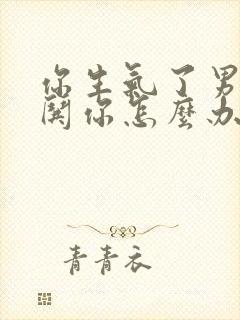 你生氣了男
關你怎麼办
青青衣